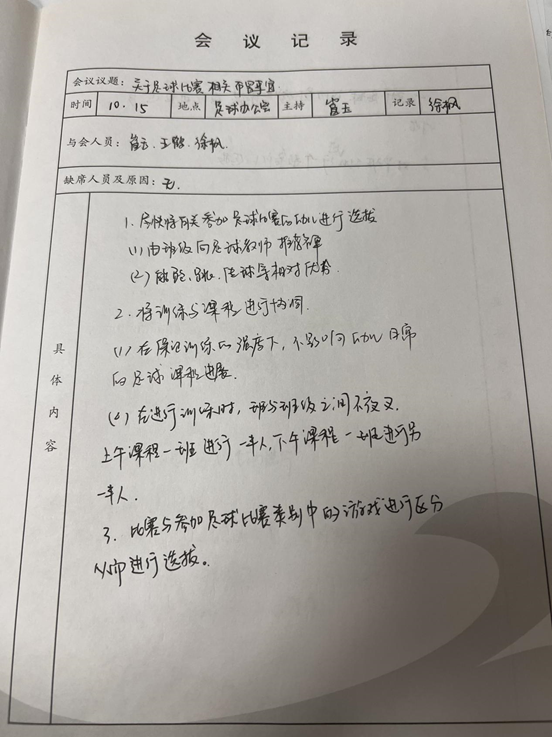 会议记录
会议议题：关于足球比赛相关事宜
时间 10.15 地点 足球办公室 主持 官五 记录 徐枫
与会人员：官五、王 、徐枫.
缺席人员及原因：无.
具体内容
1. 尽快将 参加足球比赛的幼儿进行选拔
(1) 由班级向足球教师推荐
(2) 能跑、跳、 球等相对优秀.
2. 将训练与课程进行协同.
(1) 在保证训练的强度下，不影响幼儿日常
的足球课程进展.
(2) 在进行训练时，班与班级之间不交叉.
上午课程一班进行一半人,下午课程一班进行另
一半人.
3. 比赛与参加足球比赛类别中的游戏进行区分
从而进行选拔。